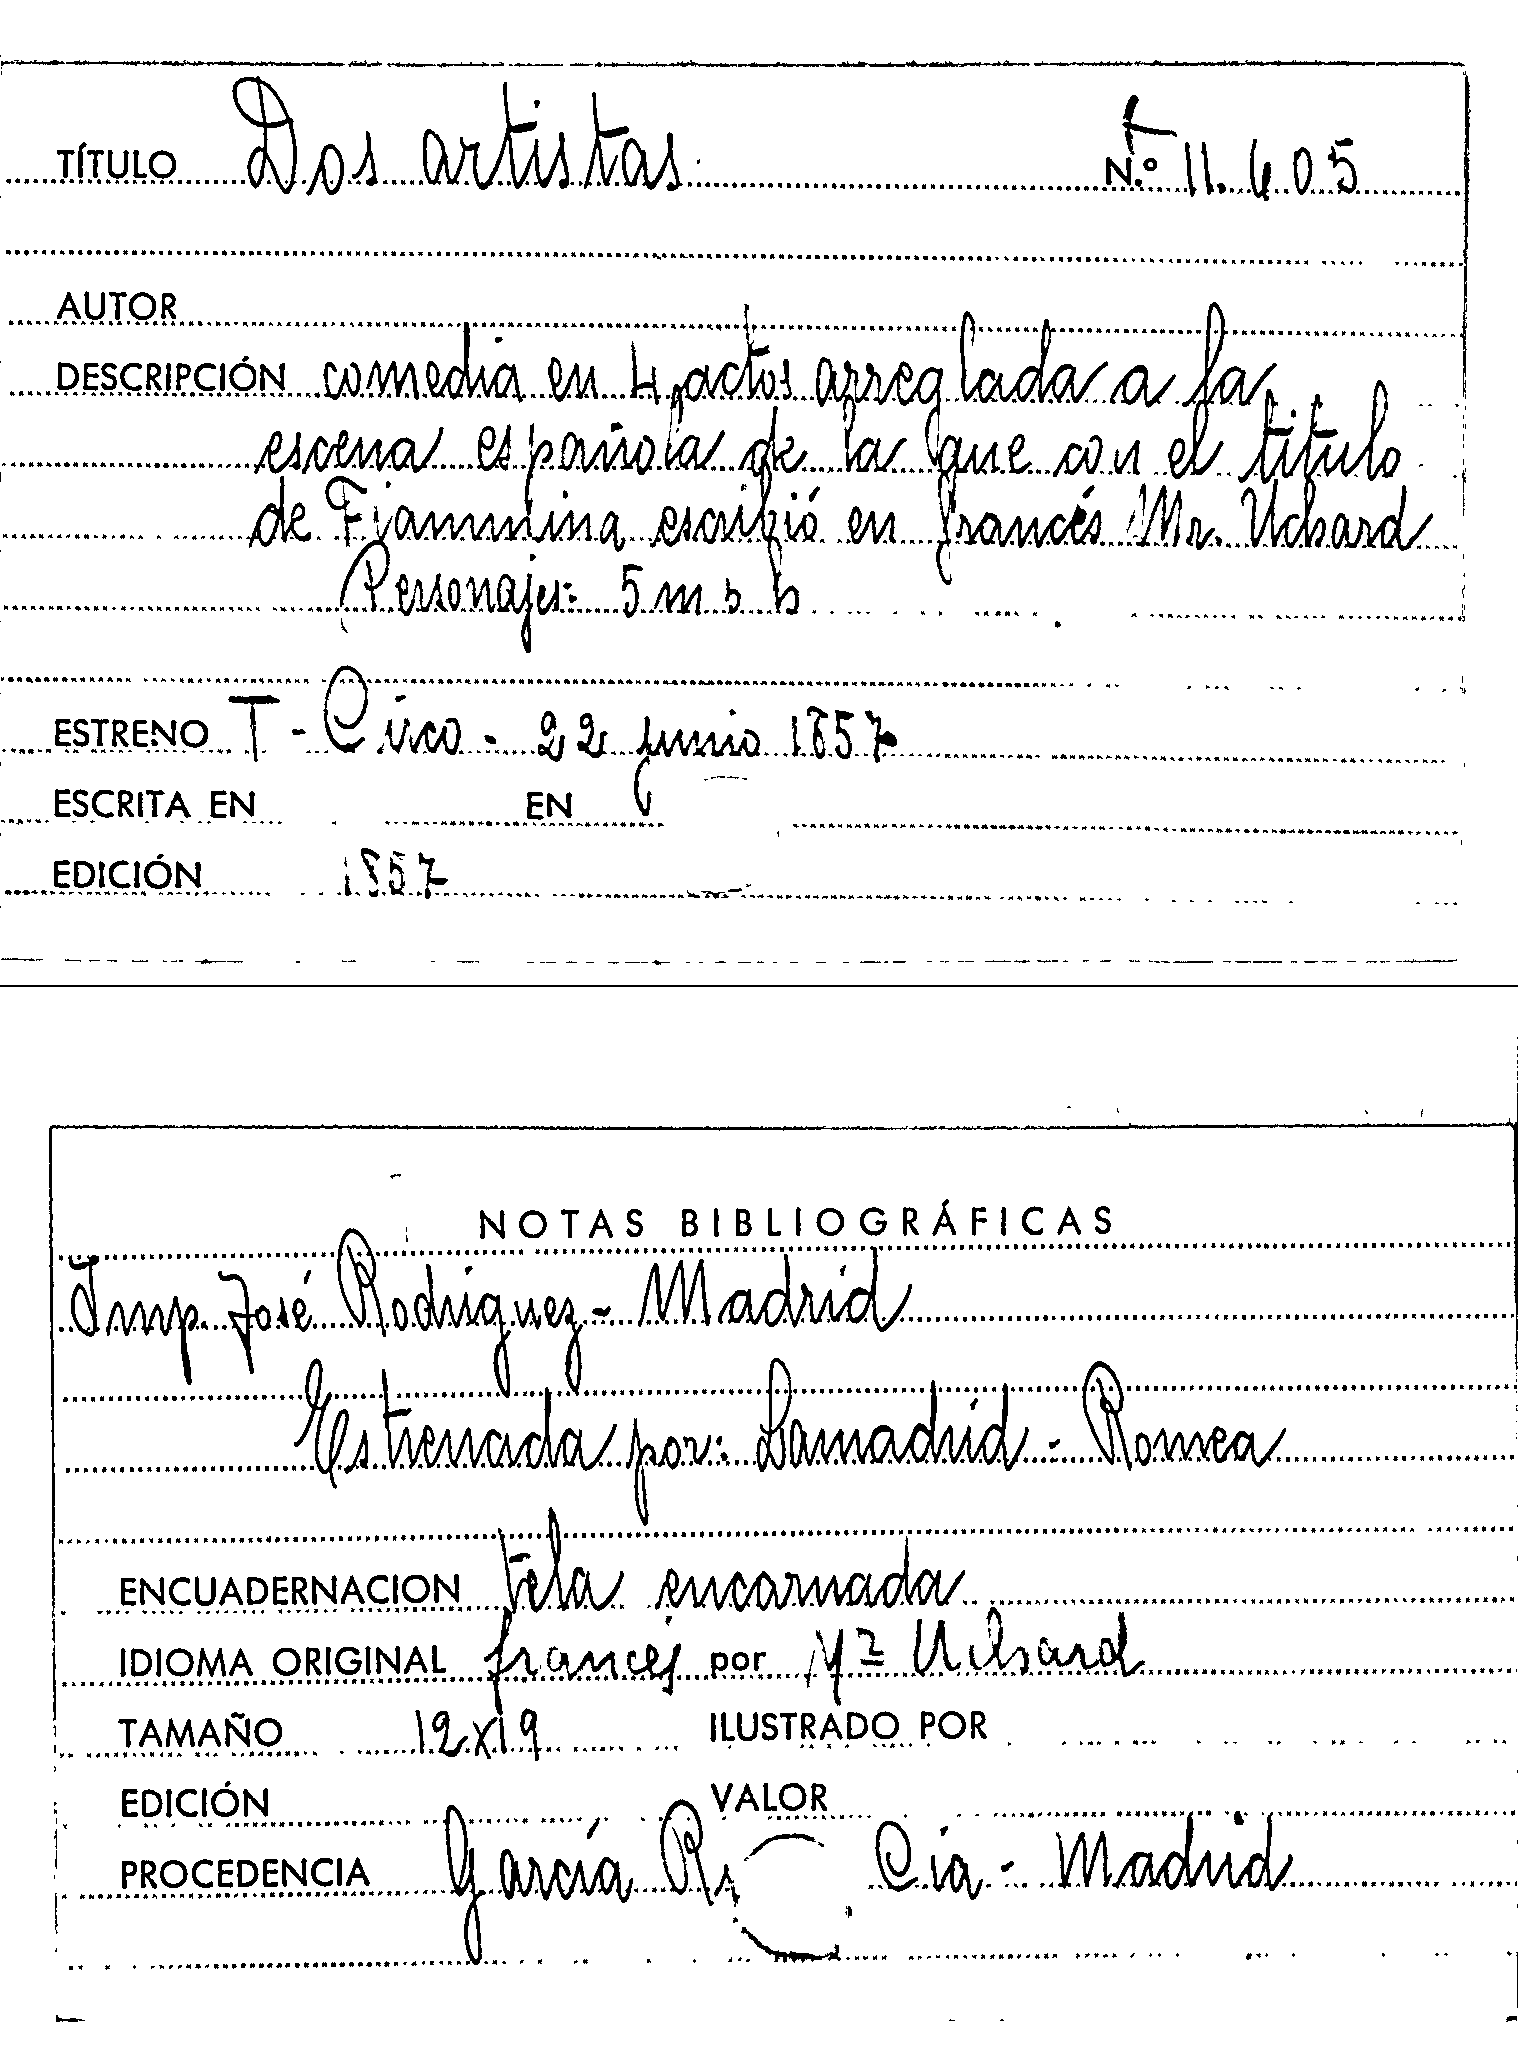 TÍTULO Dos artistas. N.º 11.605
AUTOR
DESCRIPCIÓN comedia en 4 actos arreglada a la
escena española de la que con el titulo
de Fiammina escribió en francés Mr. Uchard
Personajes: 5 m
ESTRENO T - Circo - 22 junio 1857
ESCRITA EN EN
EDICIÓN 1857
NOTAS BIBLIOGRÁFICAS
Imp. José Rodriguez - Madrid
Estrenada por: Lamadrid - Romea
ENCUADERNACION tela encarnada
IDIOMA ORIGINAL francés por Uchard
TAMAÑO 12x19 ILUSTRADO POR
EDICIÓN VALOR
PROCEDENCIA García Cia - Madrid